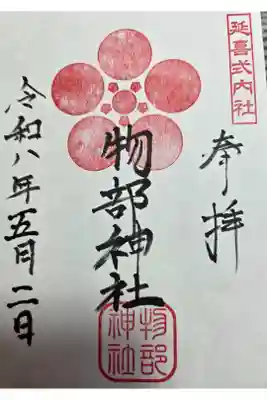 延喜式内社
奉拝
物部神社
物部
神社
令和八年五月二日